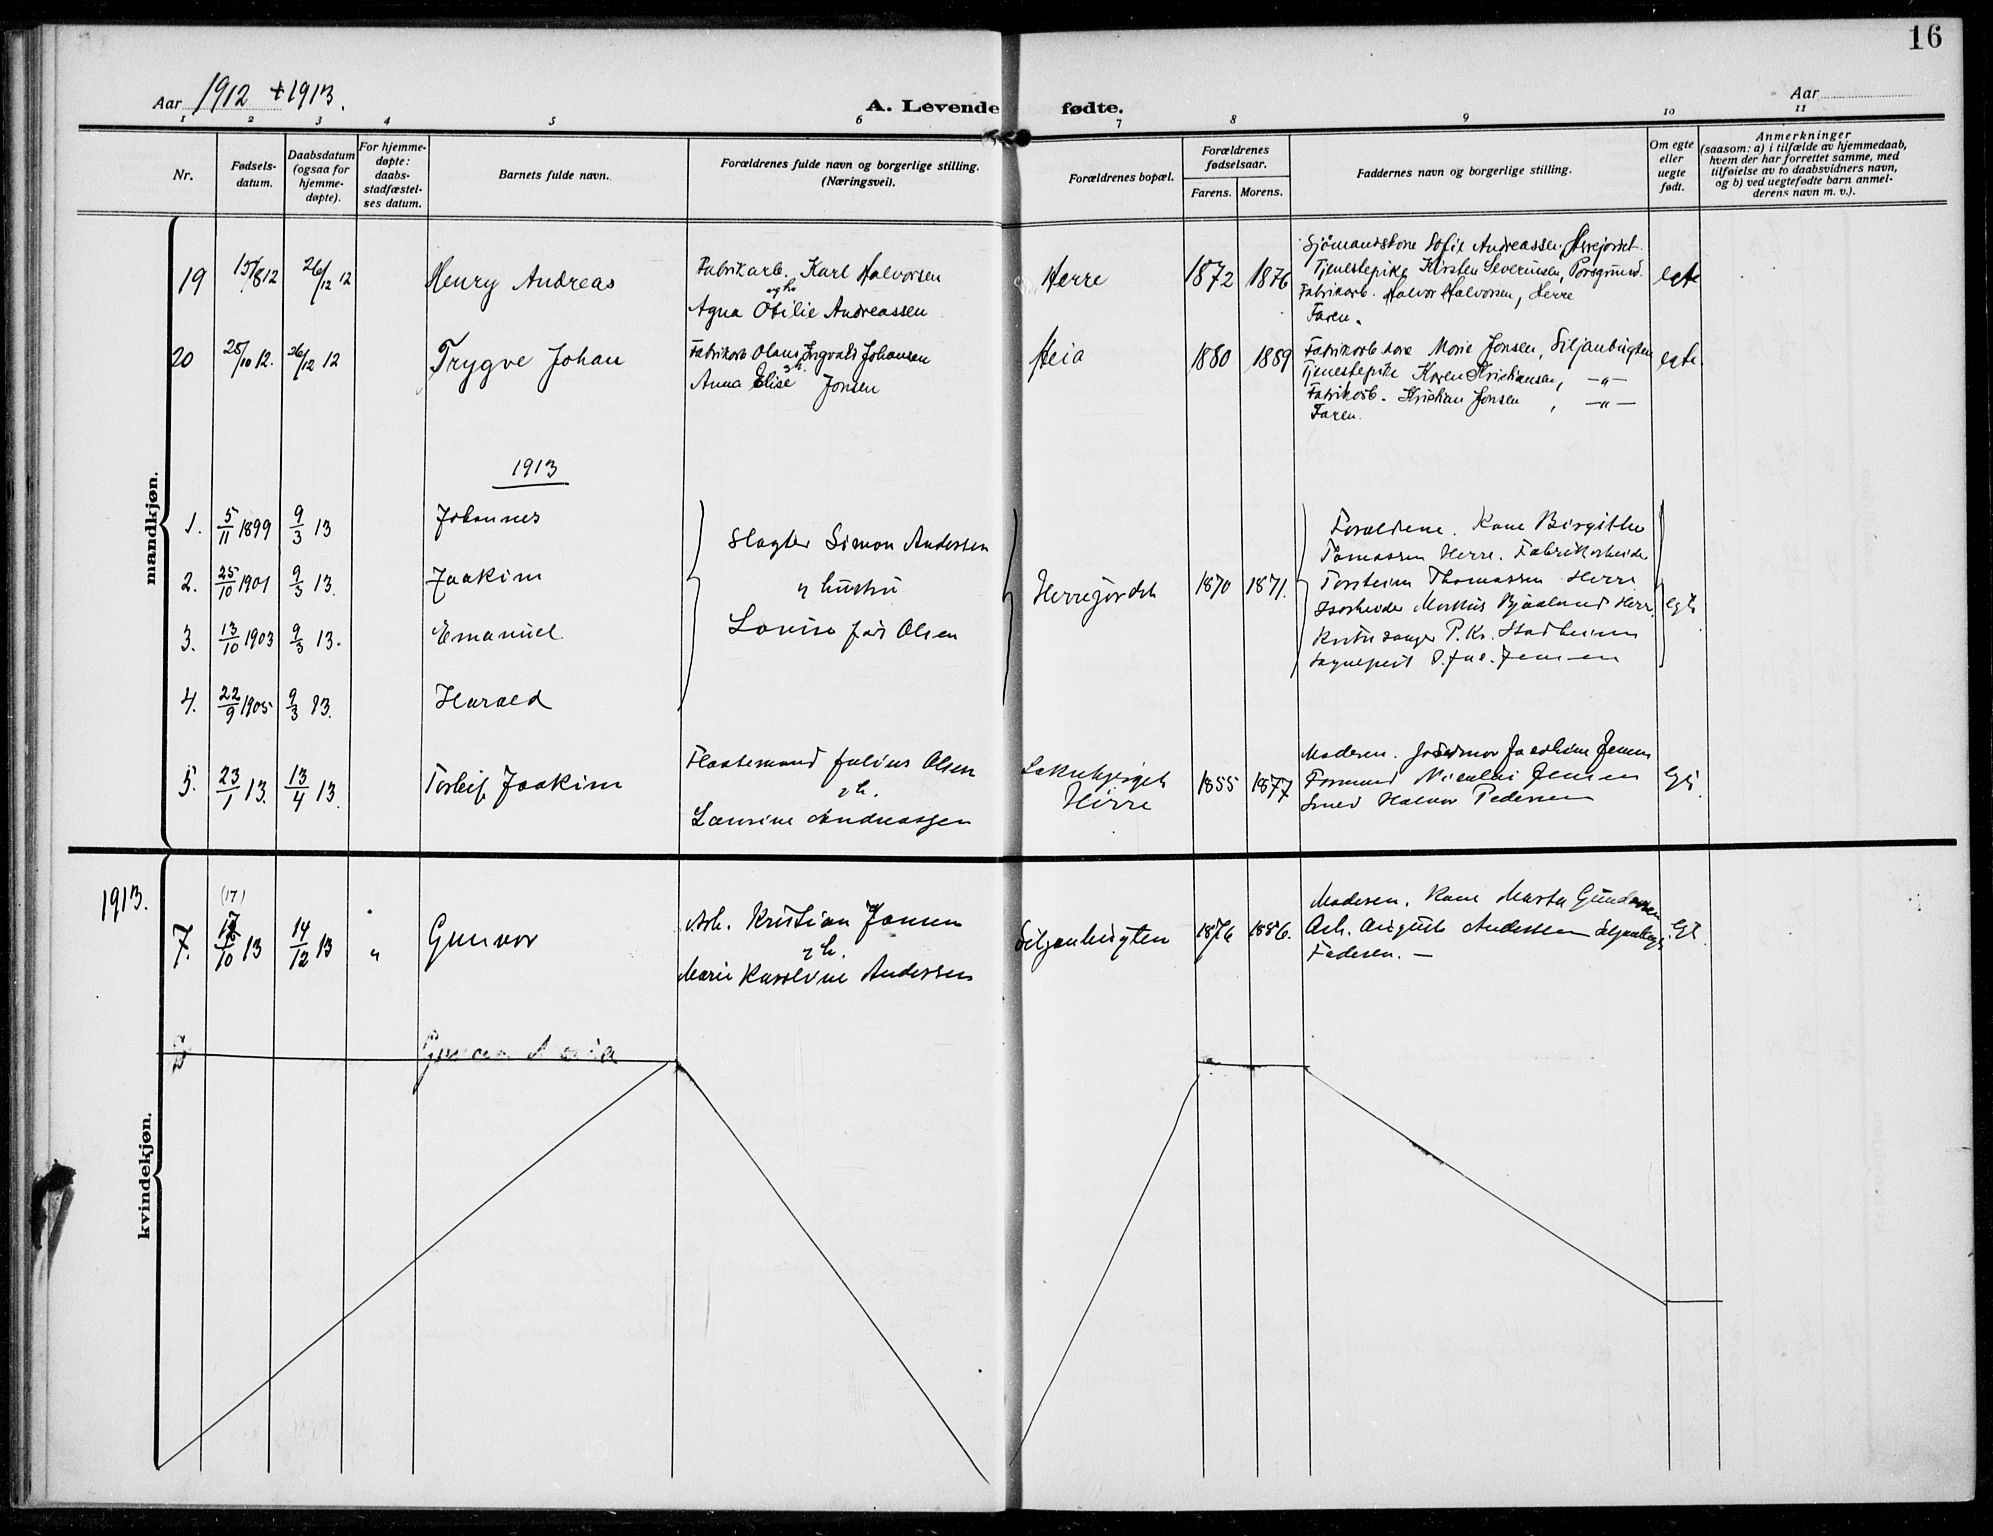 16
Aar 1912 + 1913.
A. Levende fødte.
Aar
1 2 3 4 5 6 7 8 9 10 11
Nr.
Fødsels-
datum.
Daabsdatum
(ogsaa for
hjemme-
døpte).
For hjemme-
døpte:
daabs-
stadfæstel-
ses datum.
Barnets fulde navn.
Forældrenes fulde navn og borgerlige stilling.
(Næringsvei).
Forældrenes bopæl.
Forældrenes
fødselsaar.
Farens. Morens.
Faddernes navn og borgerlige stilling.
Om egte
eller
uegte
født.
Anmerkninger
(saasom: a) i tilfælde av hjemmedaab,
hvem der har forrettet samme, med
tilføielse av to daabsvidners navn,
og b) ved uegtefødte barn anmel-
derens navn m. v.).
mandkjøn.
19 15/8 12 26/12 12 Henry Andreas
Fabrikarb. Karl Halvorsen
og h.
Agna Otilie Andreassen
Herre 1872 1876
Sjømandskone Sofie Andreassen, Herrejordet
Tjenestepike Kirsten Severinsen, Porsgrund.
Fabrikarb. Halvor Halvorsen, Herre
Faren.
egte
20 25/10 12. 26/12 12 Trygve Johan
Fabrikarb Olaus Ingvald Johansen
Anna Elise Jonsen
Heia 1880 1889
Fabrikarb. kone Marie Jonsen, Siljanbugten
Tjenestepike Karen Kristiansen, —"—
Fabrikarb. Kristian Jonsen, —"—
Faren.
egte.
1913
1. 5/11 1899 9/3 13 Johannes
2. 25/10 1901 9/3 13. Joakim
3. 13/10 1903 9/3 13. Emanuel
4. 22/9 1905 9/3 13. Harald
Slagter Simon Andersen
og hustru
Lovise født Olsen
Herregjordet 1870 1871.
Forældrene. Kone Birgithe
Tomassen Herre. Fabrikarbeider
Torstein Thomassen Herre
Markus Bjaaland Herre
P. Kr. Stadheim
Jensen
egte
5. 23/1 13. 13/4 13. Torleif Joakim
Flaatemand Julius Olsen
og h.
Laurine Andreassen
Herre 1855 1877
Moderen. Jordmor Jensen
Formand Nicolai Jensen
Smed Halvor Pedersen
Egte.
kvindekjøn.
1913.
(17)
7. 17/10 13 14/12 13 " Gunvor
Arb. Kristian Jonsen
og h.
Marie Karoline Andersen
Siljanbugten 1876 1886.
Moderen. Kone Marta Gundersen
Arb. August Andersen Siljanbugt.
Faderen. —
Egt.
8